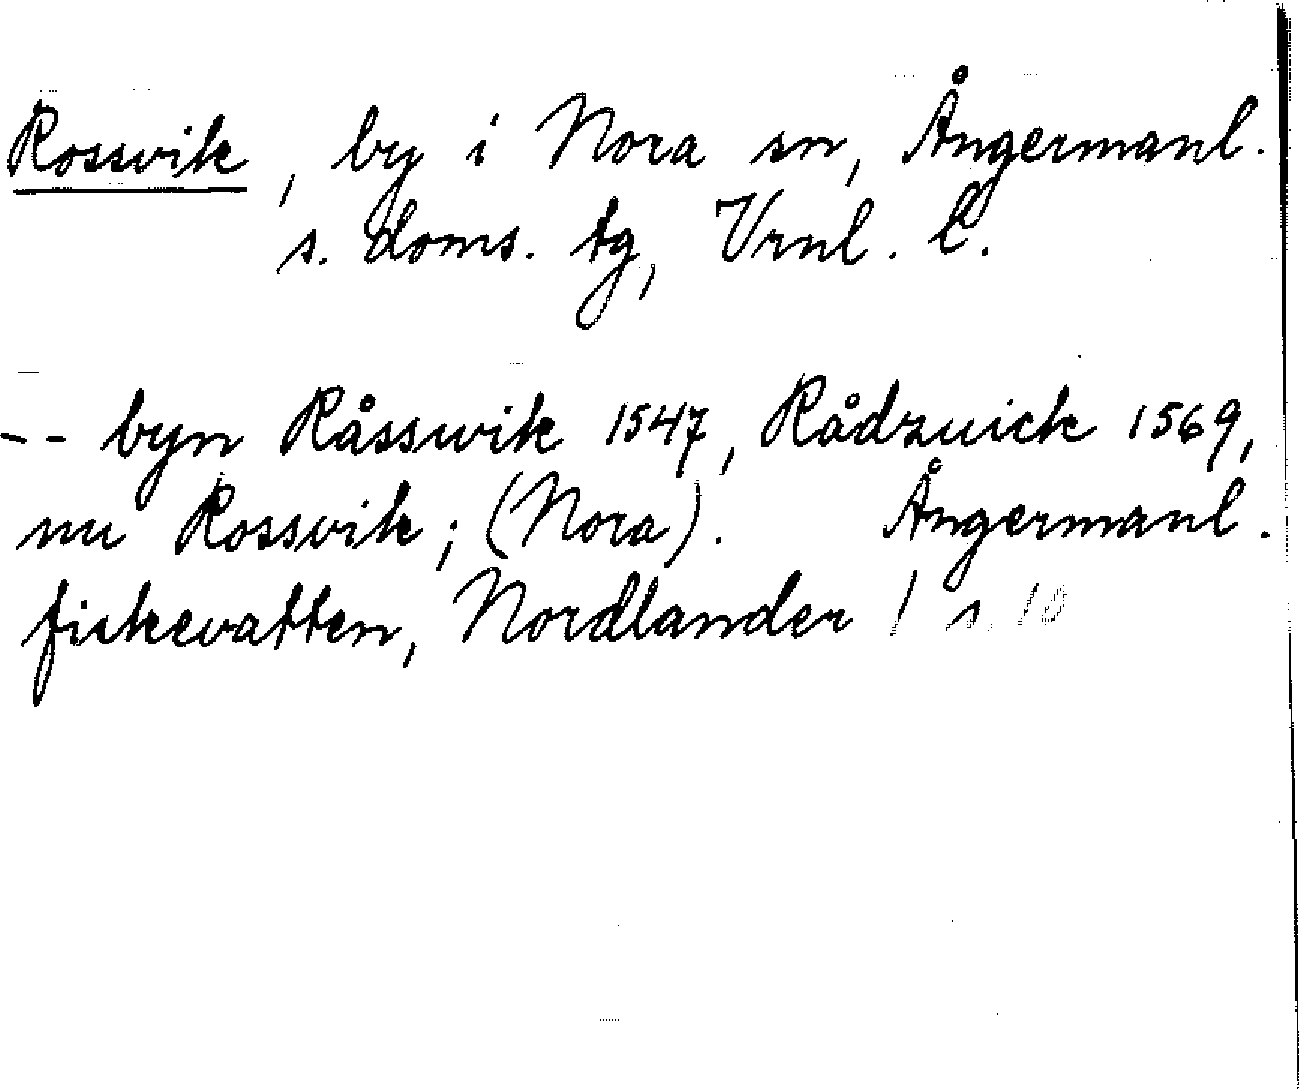 Rossvik, by i Nora sn, Ångermanl.
s. doms. tg, Vrnl. l.
-- byn Råsswik 1547, Rådzuick 1569,
nu Rossvik; (Nora). Ångermanl.
fiskevatten, Nordlander / s. 10